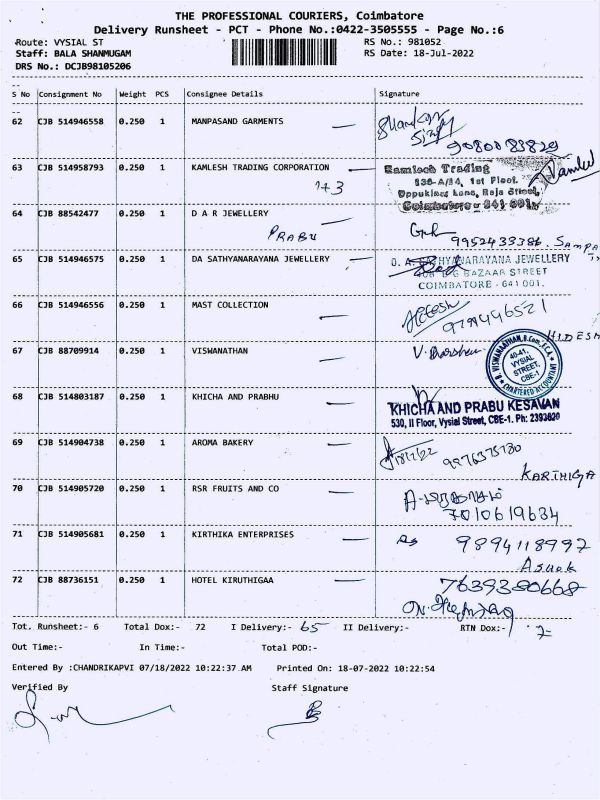 THE PROFESSIONAL COURIERS, Coimbatore
Delivery Runsheet - PCT - Phone No.:0422-3505555 - Page No.:6
Route: VYSIAL ST RS No.: 981052
Staff: BALA SHANMUGAM RS Date: 18-Jul-2022
DRS No.: DCJB98105206
S No Consignment No Weight PCS Consignee Details Signature
62 CJB 514946558 0.250 1 MANPASAND GARMENTS
63 CJB 514958793 0.250 1 KAMLESH TRADING CORPORATION
Kamlesh Trading
1st Floor,
Coimbatore - 641 001.
1+3
64 CJB 88542477 0.250 1 D A R JEWELLERY
PRABU
9952433386
65 CJB 514946575 0.250 1 DA SATHYANARAYANA JEWELLERY
D. A. SATHYANARAYANA JEWELLERY
BAZAAR STREET
COIMBATORE - 641 001.
66 CJB 514946556 0.250 1 MAST COLLECTION
67 CJB 88709914 0.250 1 VISWANATHAN
40-41, VYSIAL STREET, CBE-1
CHARTERED ACCOUNTANT
68 CJB 514803187 0.250 1 KHICHA AND PRABHU
KHICHA AND PRABU KESAVAN
530, II Floor, Vysial Street, CBE-1. Ph: 2393820
69 CJB 514904738 0.250 1 AROMA BAKERY
KARTHIGA
70 CJB 514905720 0.250 1 RSR FRUITS AND CO
7010619634
71 CJB 514905681 0.250 1 KIRTHIKA ENTERPRISES
9894118997
Ashok
72 CJB 88736151 0.250 1 HOTEL KIRUTHIGAA
7639380668
Tot. Runsheet:- 6 Total Dox:- 72 I Delivery:- 65 II Delivery:- RTN Dox:- 7
Out Time:- In Time:- Total POD:-
Entered By :CHANDRIKAPVI 07/18/2022 10:22:37 AM Printed On: 18-07-2022 10:22:54
Verified By Staff Signature